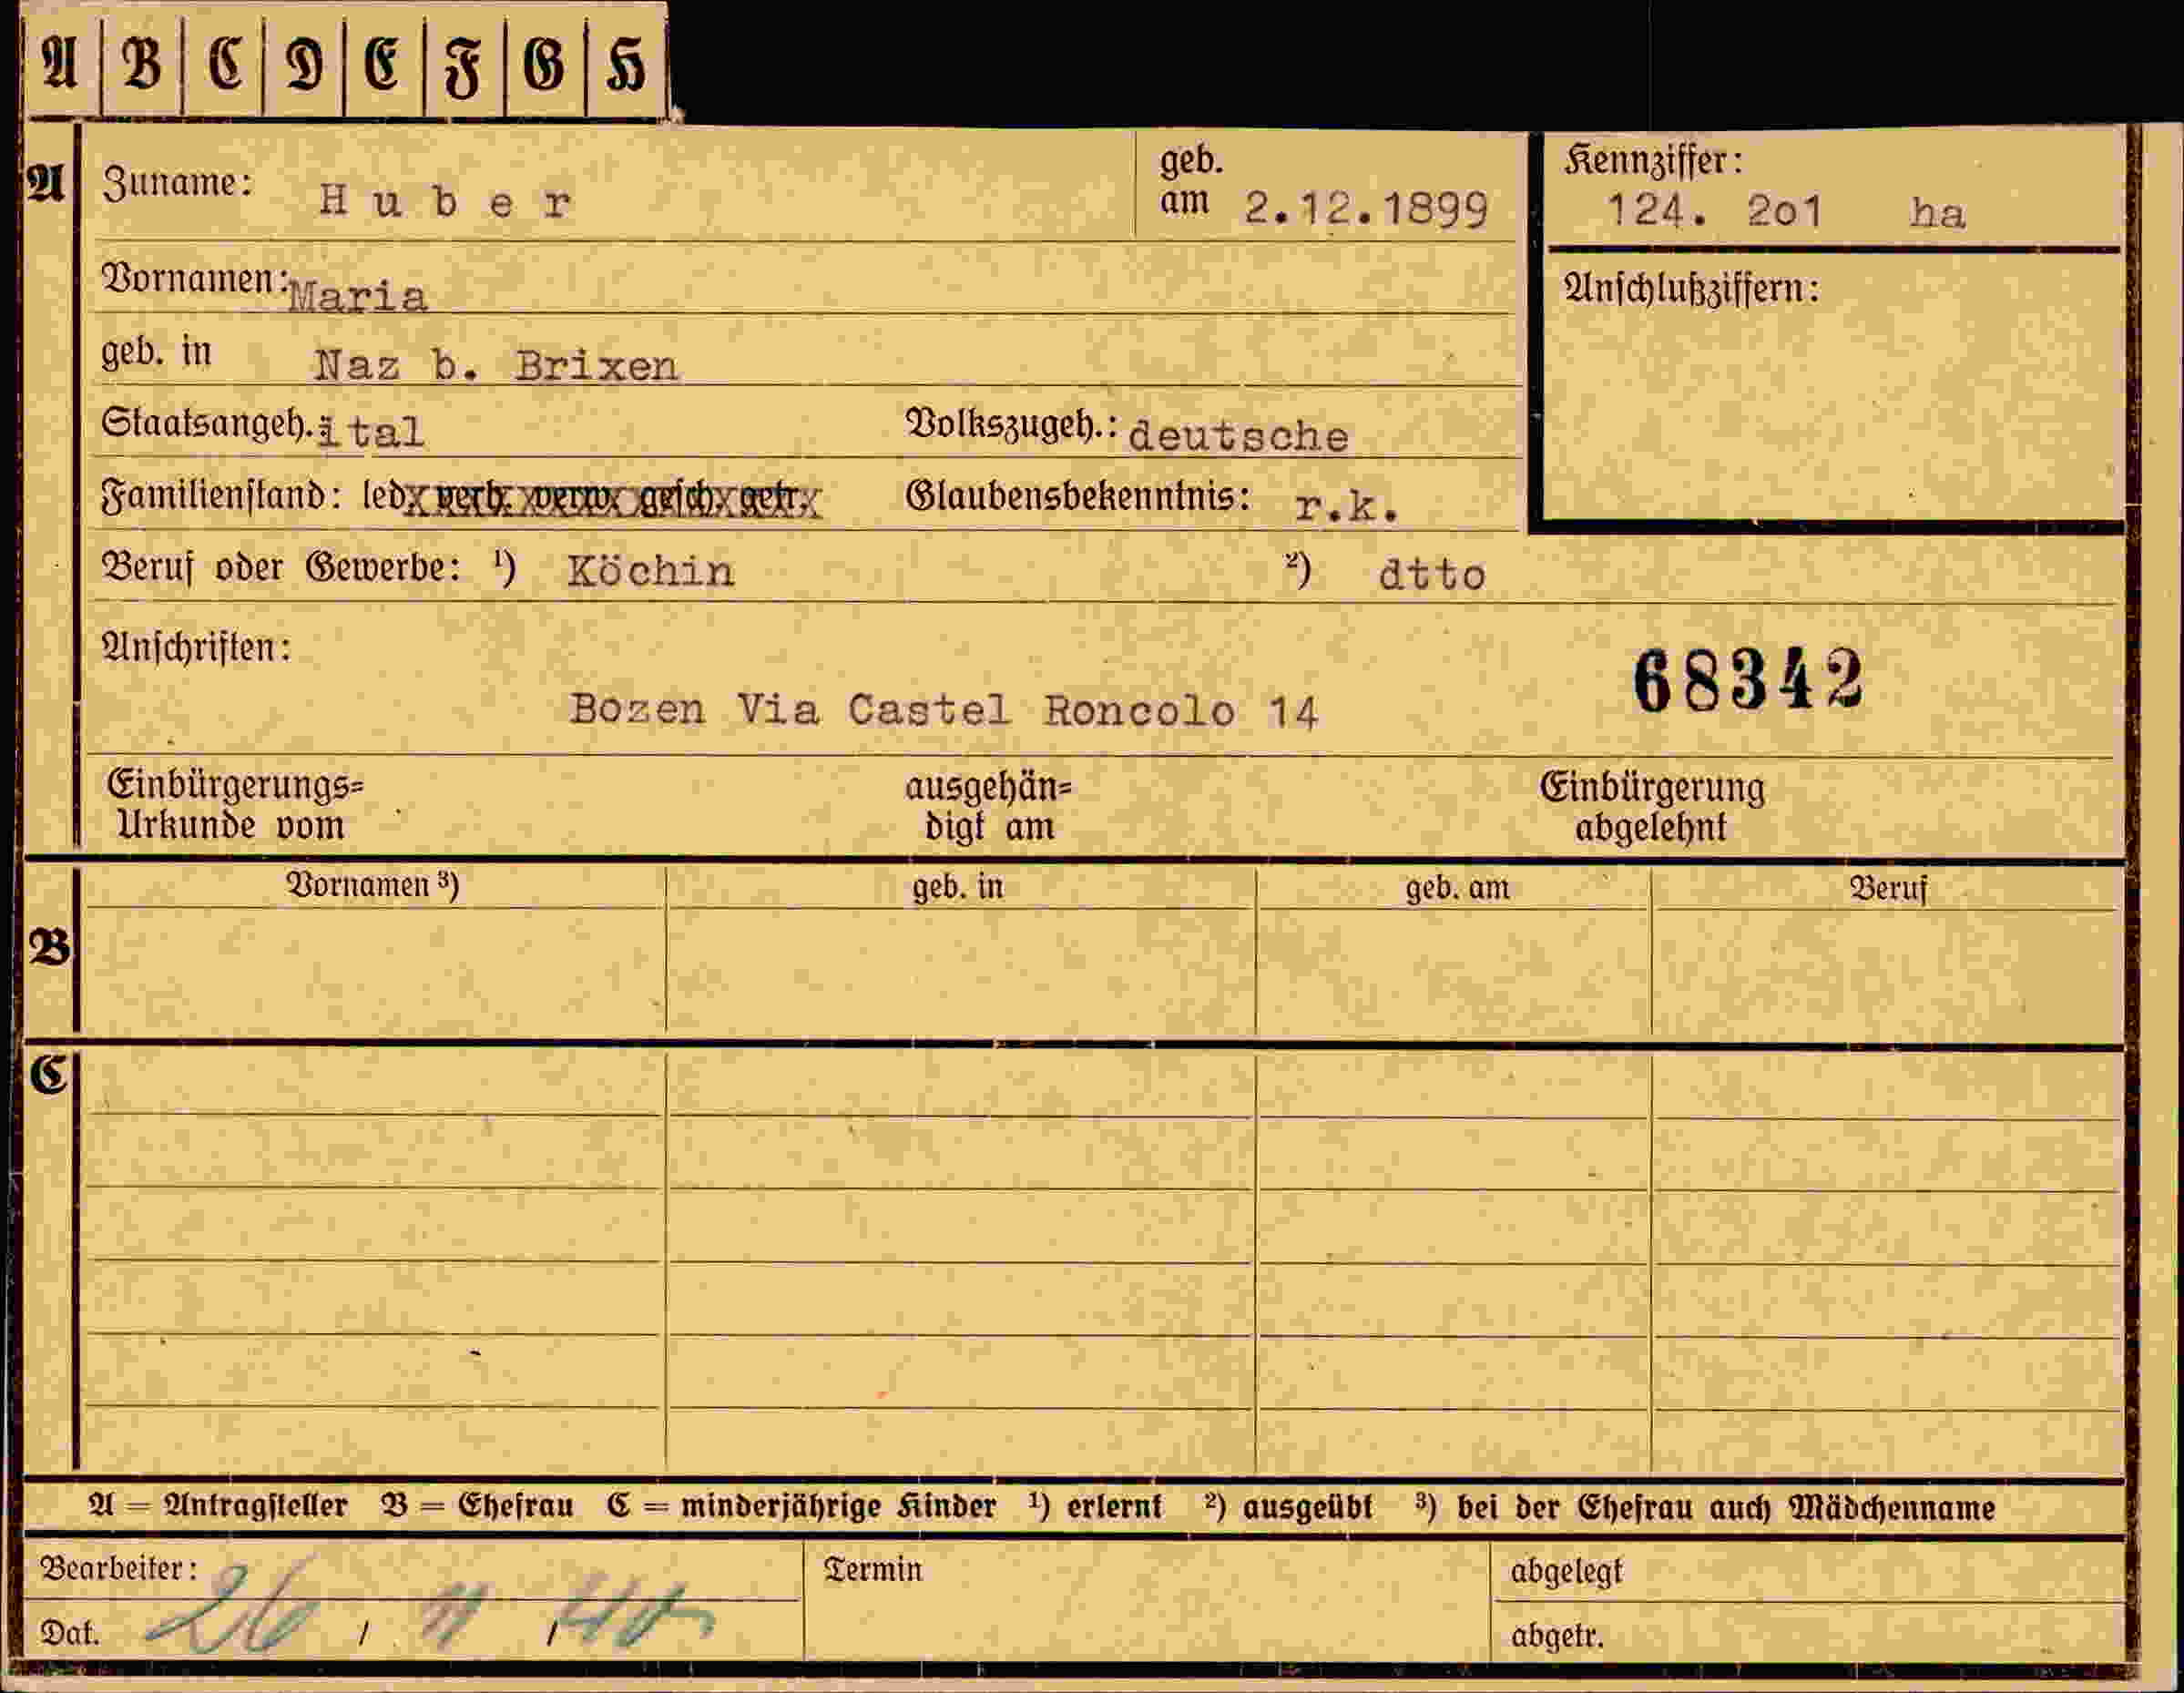 A B C D E F G H
A Zuname: Huber geb. am 2.12.1899 Kennziffer: 124. 2o1 ha
Vornamen: Maria Anschlußziffern:
geb. in Naz b. Brixen
Staatsangeh. ital Volkszugeh.: deutsche
Familienstand: led. verh. verw. gesch. getr. Glaubensbekenntnis: r.k.
Beruf oder Gewerbe: ¹) Köchin ²) dtto
Anschriften: 68342
Bozen Via Castel Roncolo 14
Einbürgerungs= ausgehän= Einbürgerung
Urkunde vom digt am abgelehnt
Vornamen ³) geb. in geb. am Beruf
B
C
A = Antragsteller B = Ehefrau C = minderjährige Kinder ¹) erlernt ²) ausgeübt ³) bei der Ehefrau auch Mädchenname
Bearbeiter: Termin abgelegt
Dat. 26 / 11 / 40 abgetr.